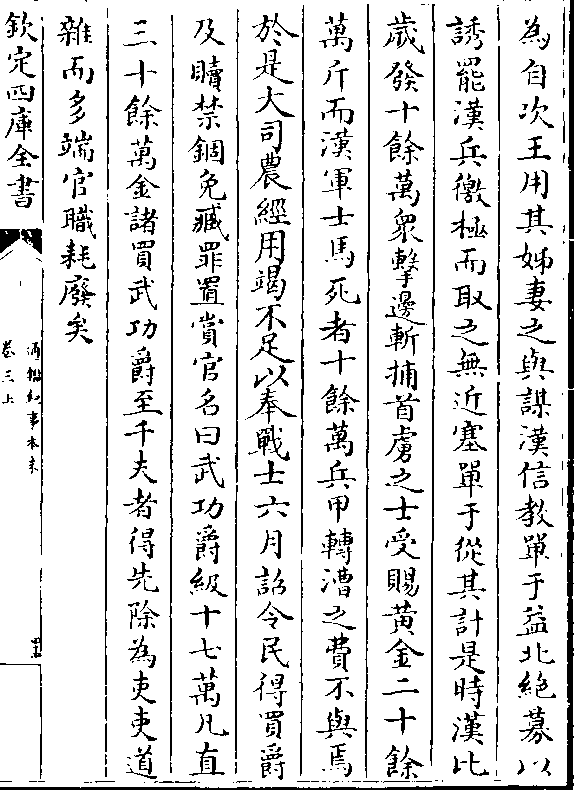 為自次王用其姊妻之與謀漢信教單于益北絶幕以
誘罷漢兵徼極而取之無近塞單于從其計是時漢比
歳發十餘萬衆擊邊斬捕首虜之士受賜黃金二十餘
萬斤而漢軍士馬死者十餘萬兵甲轉漕之費不與焉
於是大司農經用竭不足以奉戰士六月詔令民得買爵
及贖禁錮免臧罪置賞官名曰武功爵級十七萬凡直
三十餘萬金諸買武功爵至千夫者得先除為吏吏道
雜而多端官職耗廢矣
欽定四庫全書
通鑑紀事本末
卷三上